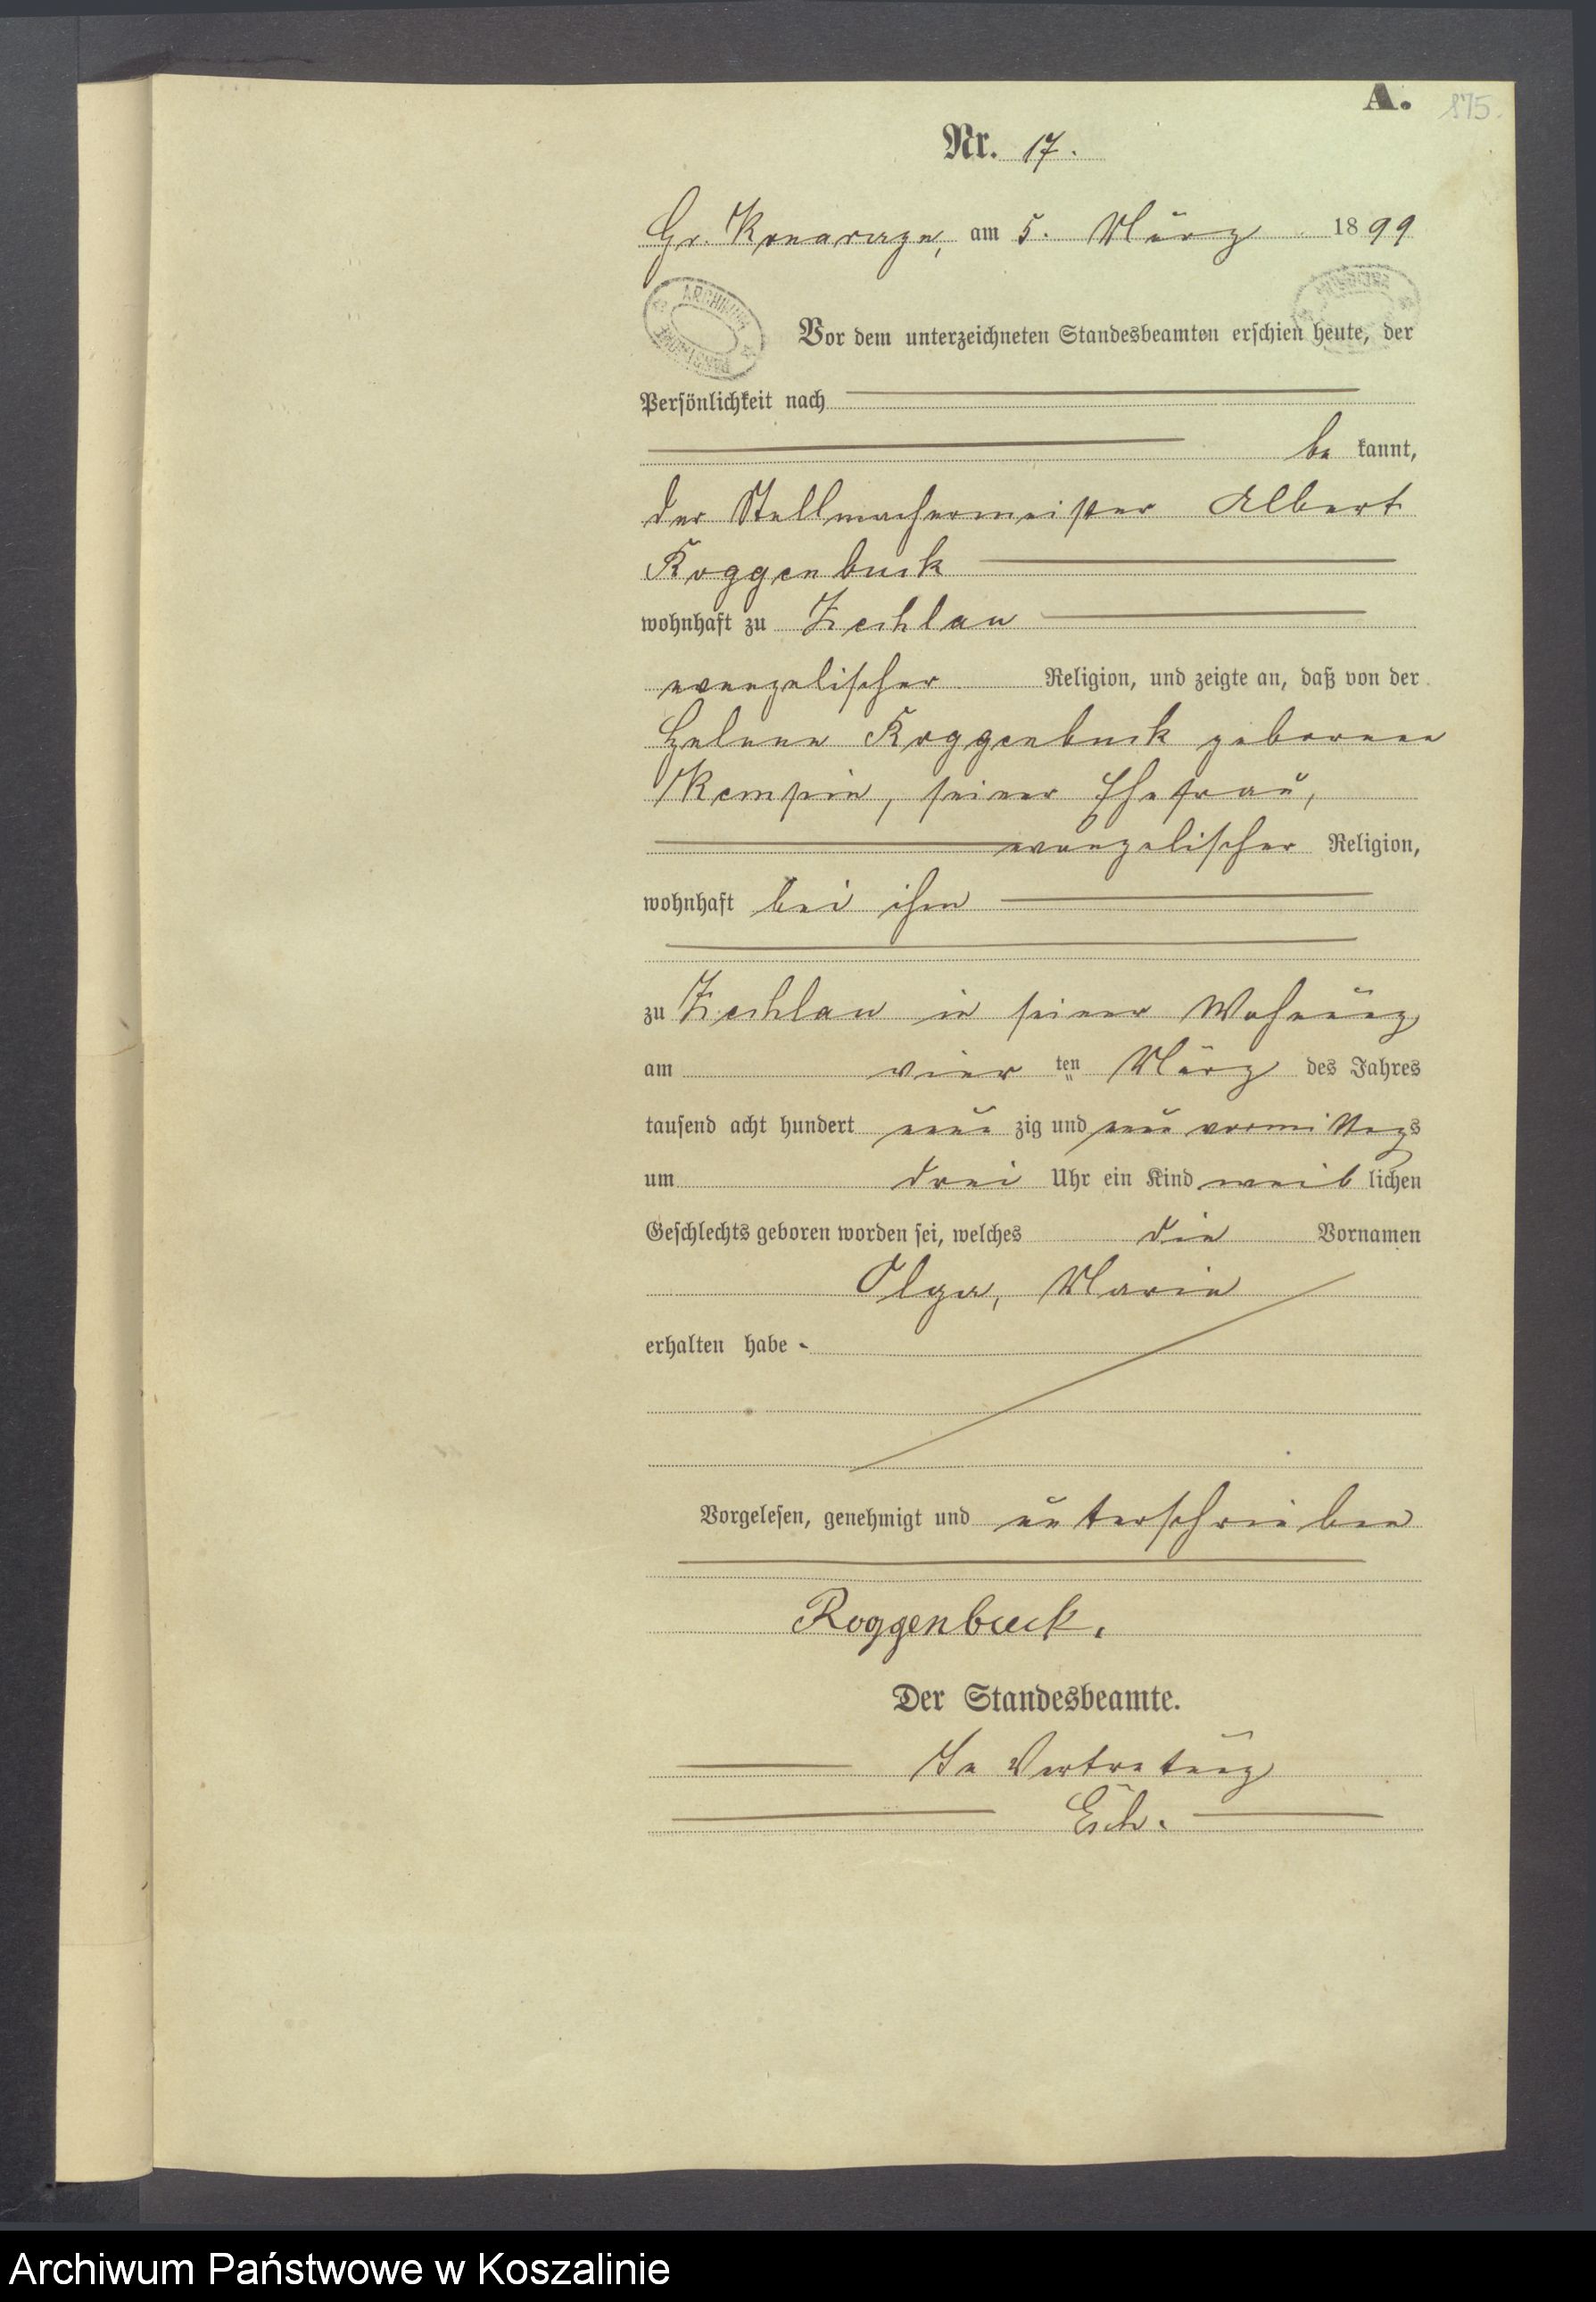 A. 875.
Nr. 17.
Gr. Konarczyn, am 5. März 1899
ARCHIWUM
Vor dem unterzeichneten Standesbeamten erschien heute, der
Persönlichkeit nach
be kannt,
der Stellmachermeister Albert
Roggenbuck
wohnhaft zu Zechlau
evangelischer Religion, und zeigte an, daß von der
Helene Roggenbuck geborenen
Kempin, seiner Ehefrau,
evangelischer Religion,
wohnhaft bei ihm
zu Zechlau in seiner Wohnung
am vier ten März des Jahres
tausend acht hundert neun zig und neun vormittags
um drei Uhr ein Kind weib lichen
Geschlechts geboren worden sei, welches die Vornamen
Olga, Marie
erhalten habe.
Vorgelesen, genehmigt und unterschrieben
Roggenbuck.
Der Standesbeamte.
In Vertretung
Archiwum Państwowe w Koszalinie